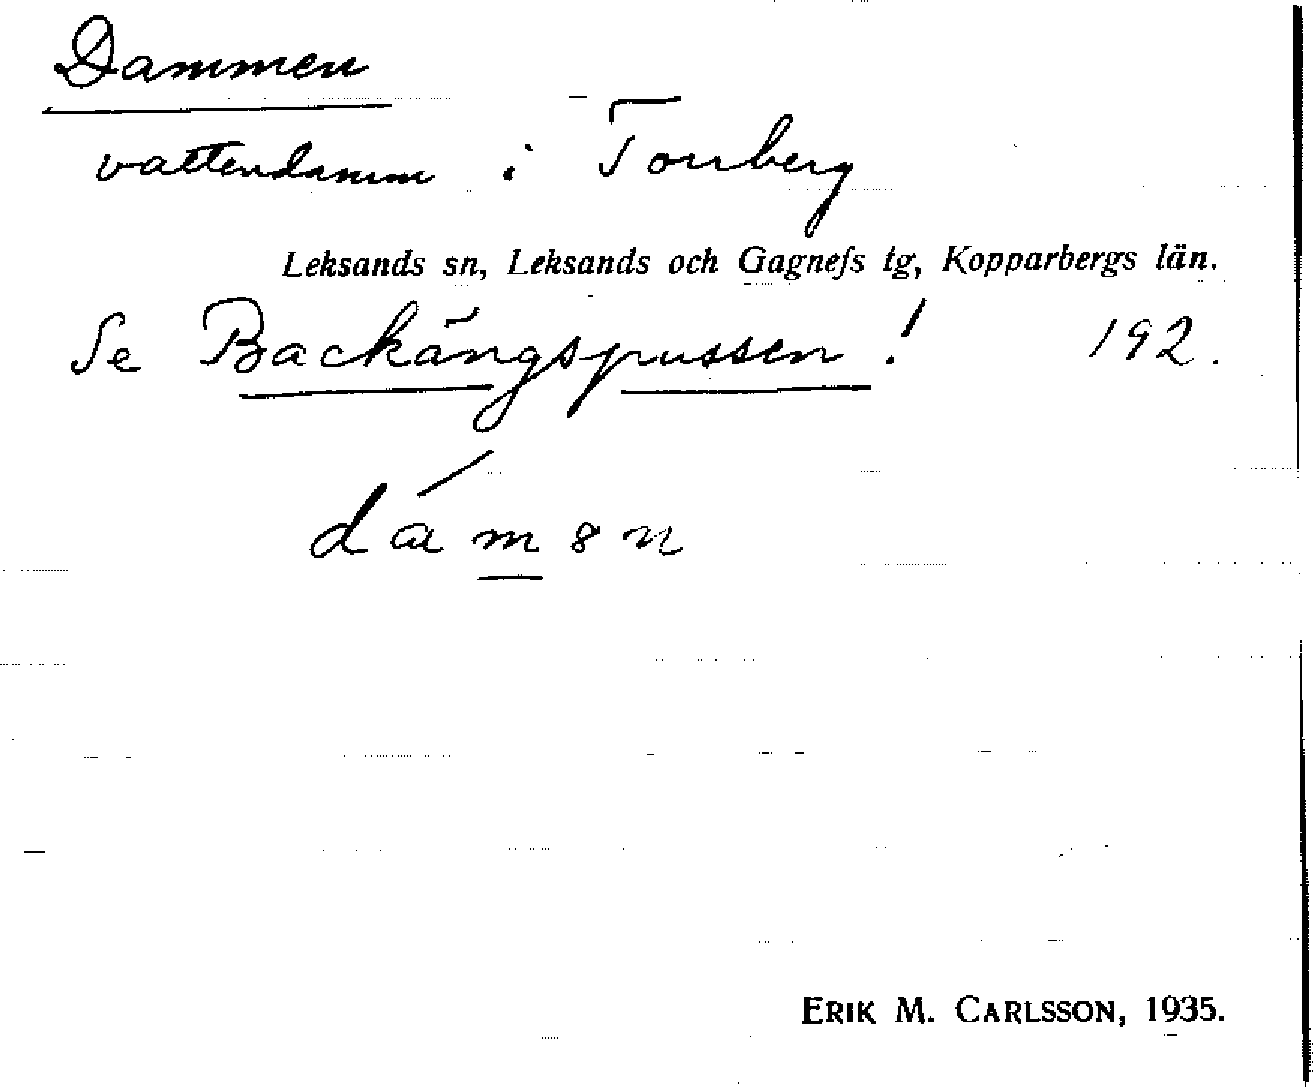 Dammen
vattendamm i Tonberg
Leksands sn, Leksands och Gagnefs tg, Kopparbergs län.
Se Backängspussen! 192.
dám8n
ERIK M. CARLSSON, 1935.